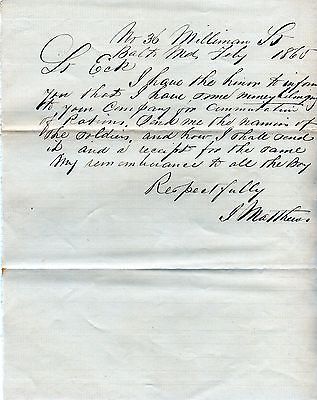 No 36 Milliman St
Balt Md Feby 1865
Lt Eck
I have the honor to inform
you that I have some money belonging
to your Company for Commutation
of Rations. Send me the names of
the soldiers, and how I shall send
it, and a receipt for the same
My remembrance to all the Boy
Respectfully
J Matthews